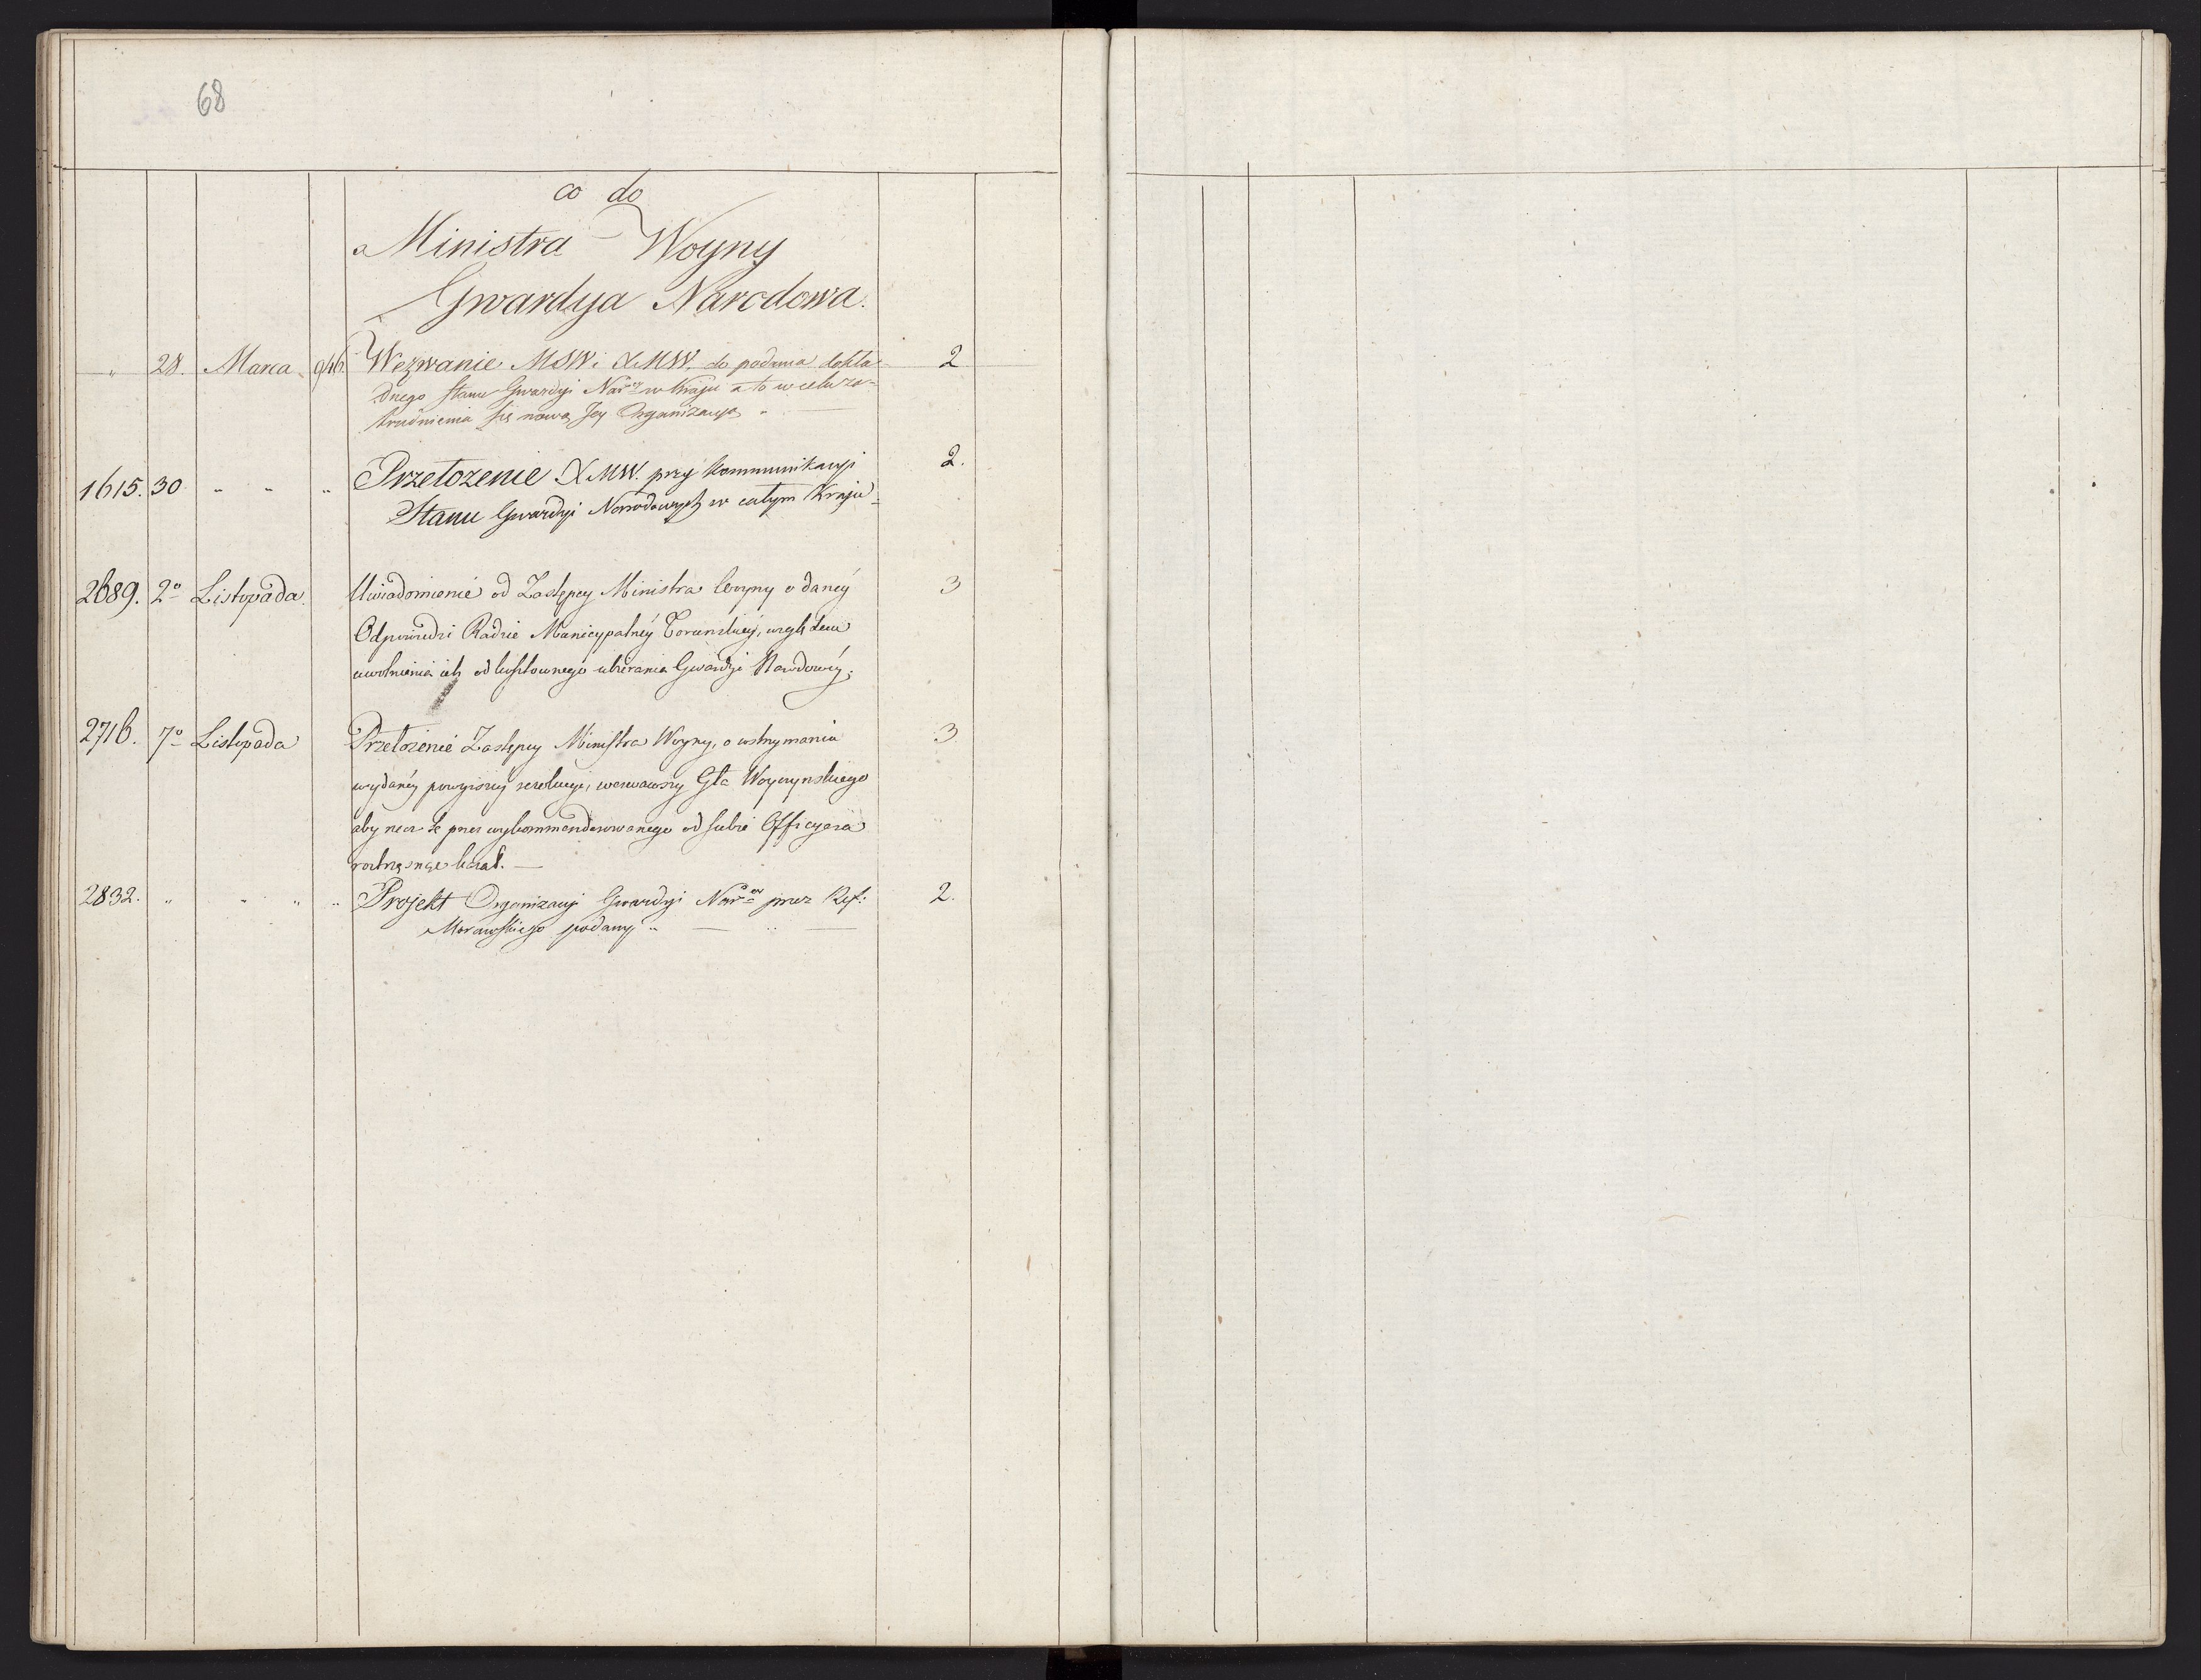 68
co do
Ministra Woyny
Gwardya Narodowa.
" 28. Marca 946. Wezwanie MSW: XMW. do podania dokła- 2
dnego Stanu Gwardyi Nar. w Kraju a to w celu za-
trudnienia się nową Jey Organizacyą "
1615. 30 " " " Przełożenie XMW. przy Kommunikacyi 2.
Stanu Gwardyi Narodowych w całym Kraju
2689. 2º Listopada Uwiadomienié od Zastępcy Ministra Woyny o danéy 3
Odpowiedzi Radzie Municypalnéy Torunskiéy, względem
uwolnienia ich od kosztownego ubierania Gwardyi Narodowéy.
2716. 7º Listopada Przełożenié Zastępcy Ministra Woyny, o wstrzymaniu 3
wydanéy powyzszéy rezolucyi, wezwawszy Gła Woyczynskiego
aby rzecz tę przez wykommenderowanego od siebie Officyera
roztrząsnąć kazał. —
2832. " " " " Projekt Organizacyi Gwardyi Nar. przez Ref: 2.
Morawskiego podany " — " —